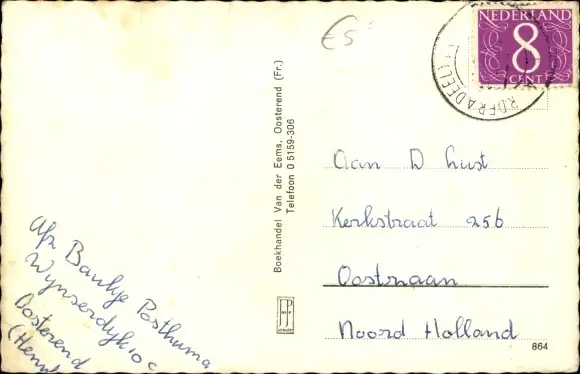 €5
NEDERLAND
8
CENT
Boekhandel Van der Eems, Oosterend (Fr.)
Telefoon 0 5159-306
Aan D Lust
Kerkstraat 256
Oostzaan
Noord Holland
Afz Baukje Posthuma
Wynserdyk 10 c
Oosterend
(Henn
JP
864